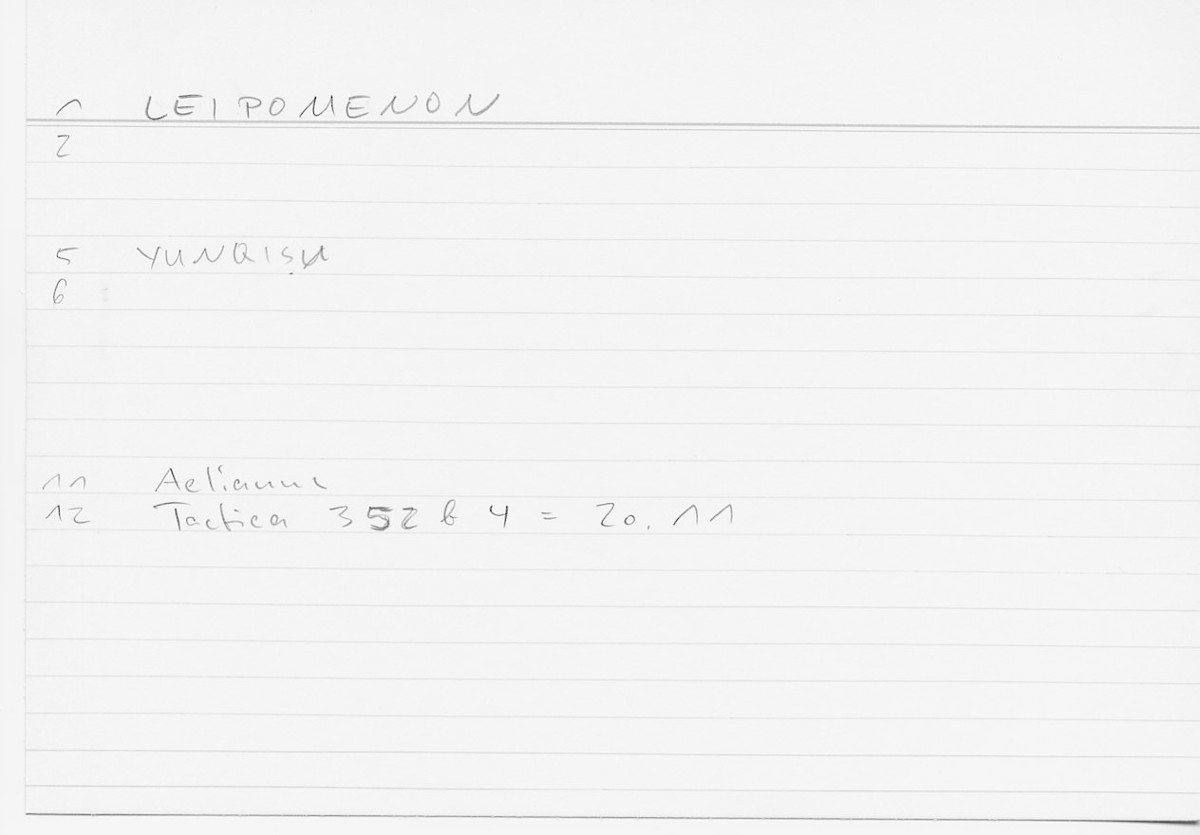 1 LEIPOMENON
2
5 YUNQIṢU
6
11 Aelianus
12 Tactica 352 b 4 = 20.11